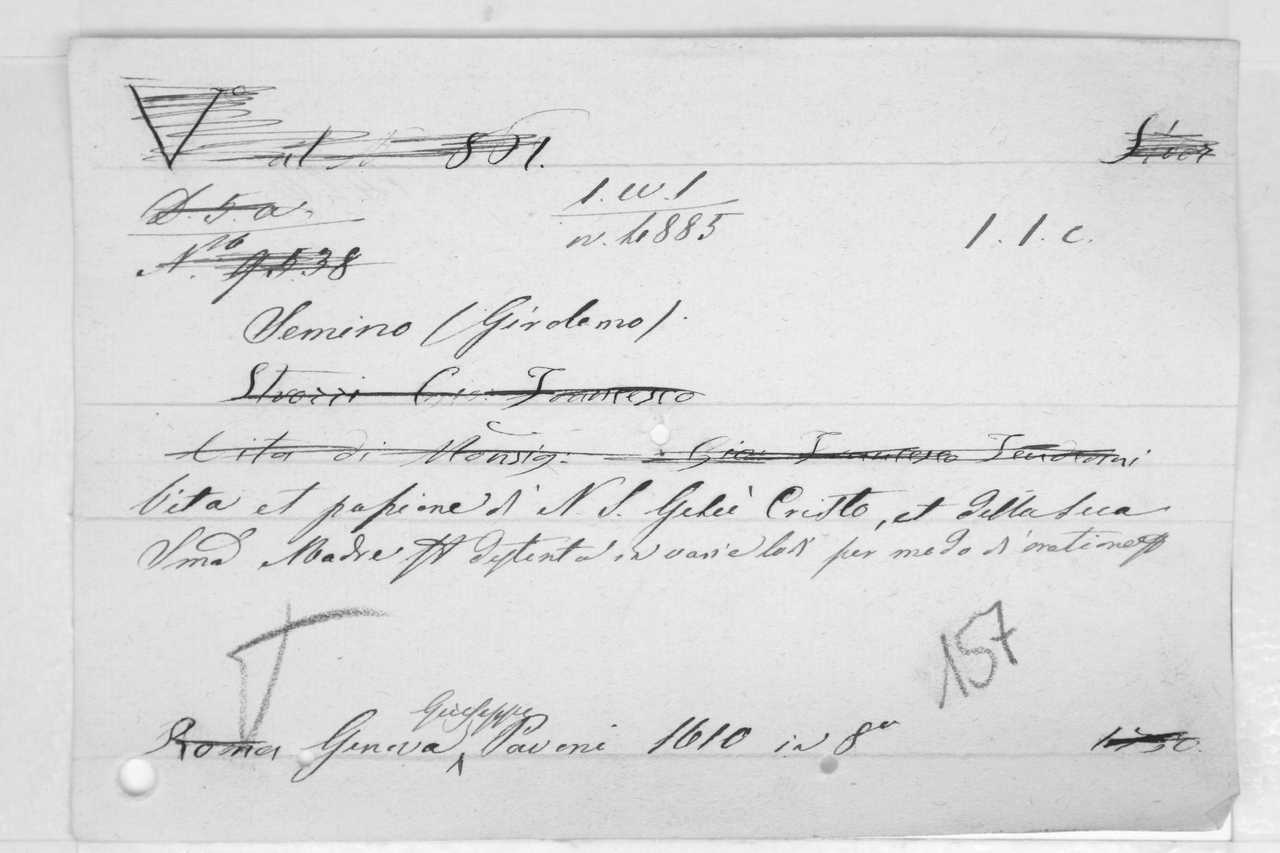 V.º al 891.
D. 5. a
1. w. 1
N. 26 9538
n. 4885
1. 1. c.
Semino (Girolamo).
Strozzi Francesco
Vita di Monsig: Gian Francesco
Vita et passione di N. S. Giesù Cristo, et della sua
Sma Madre distenta in varie lodi per modo di oratione
157
Roma Genova, Giuseppe Pavoni 1610 in 8º
1750.